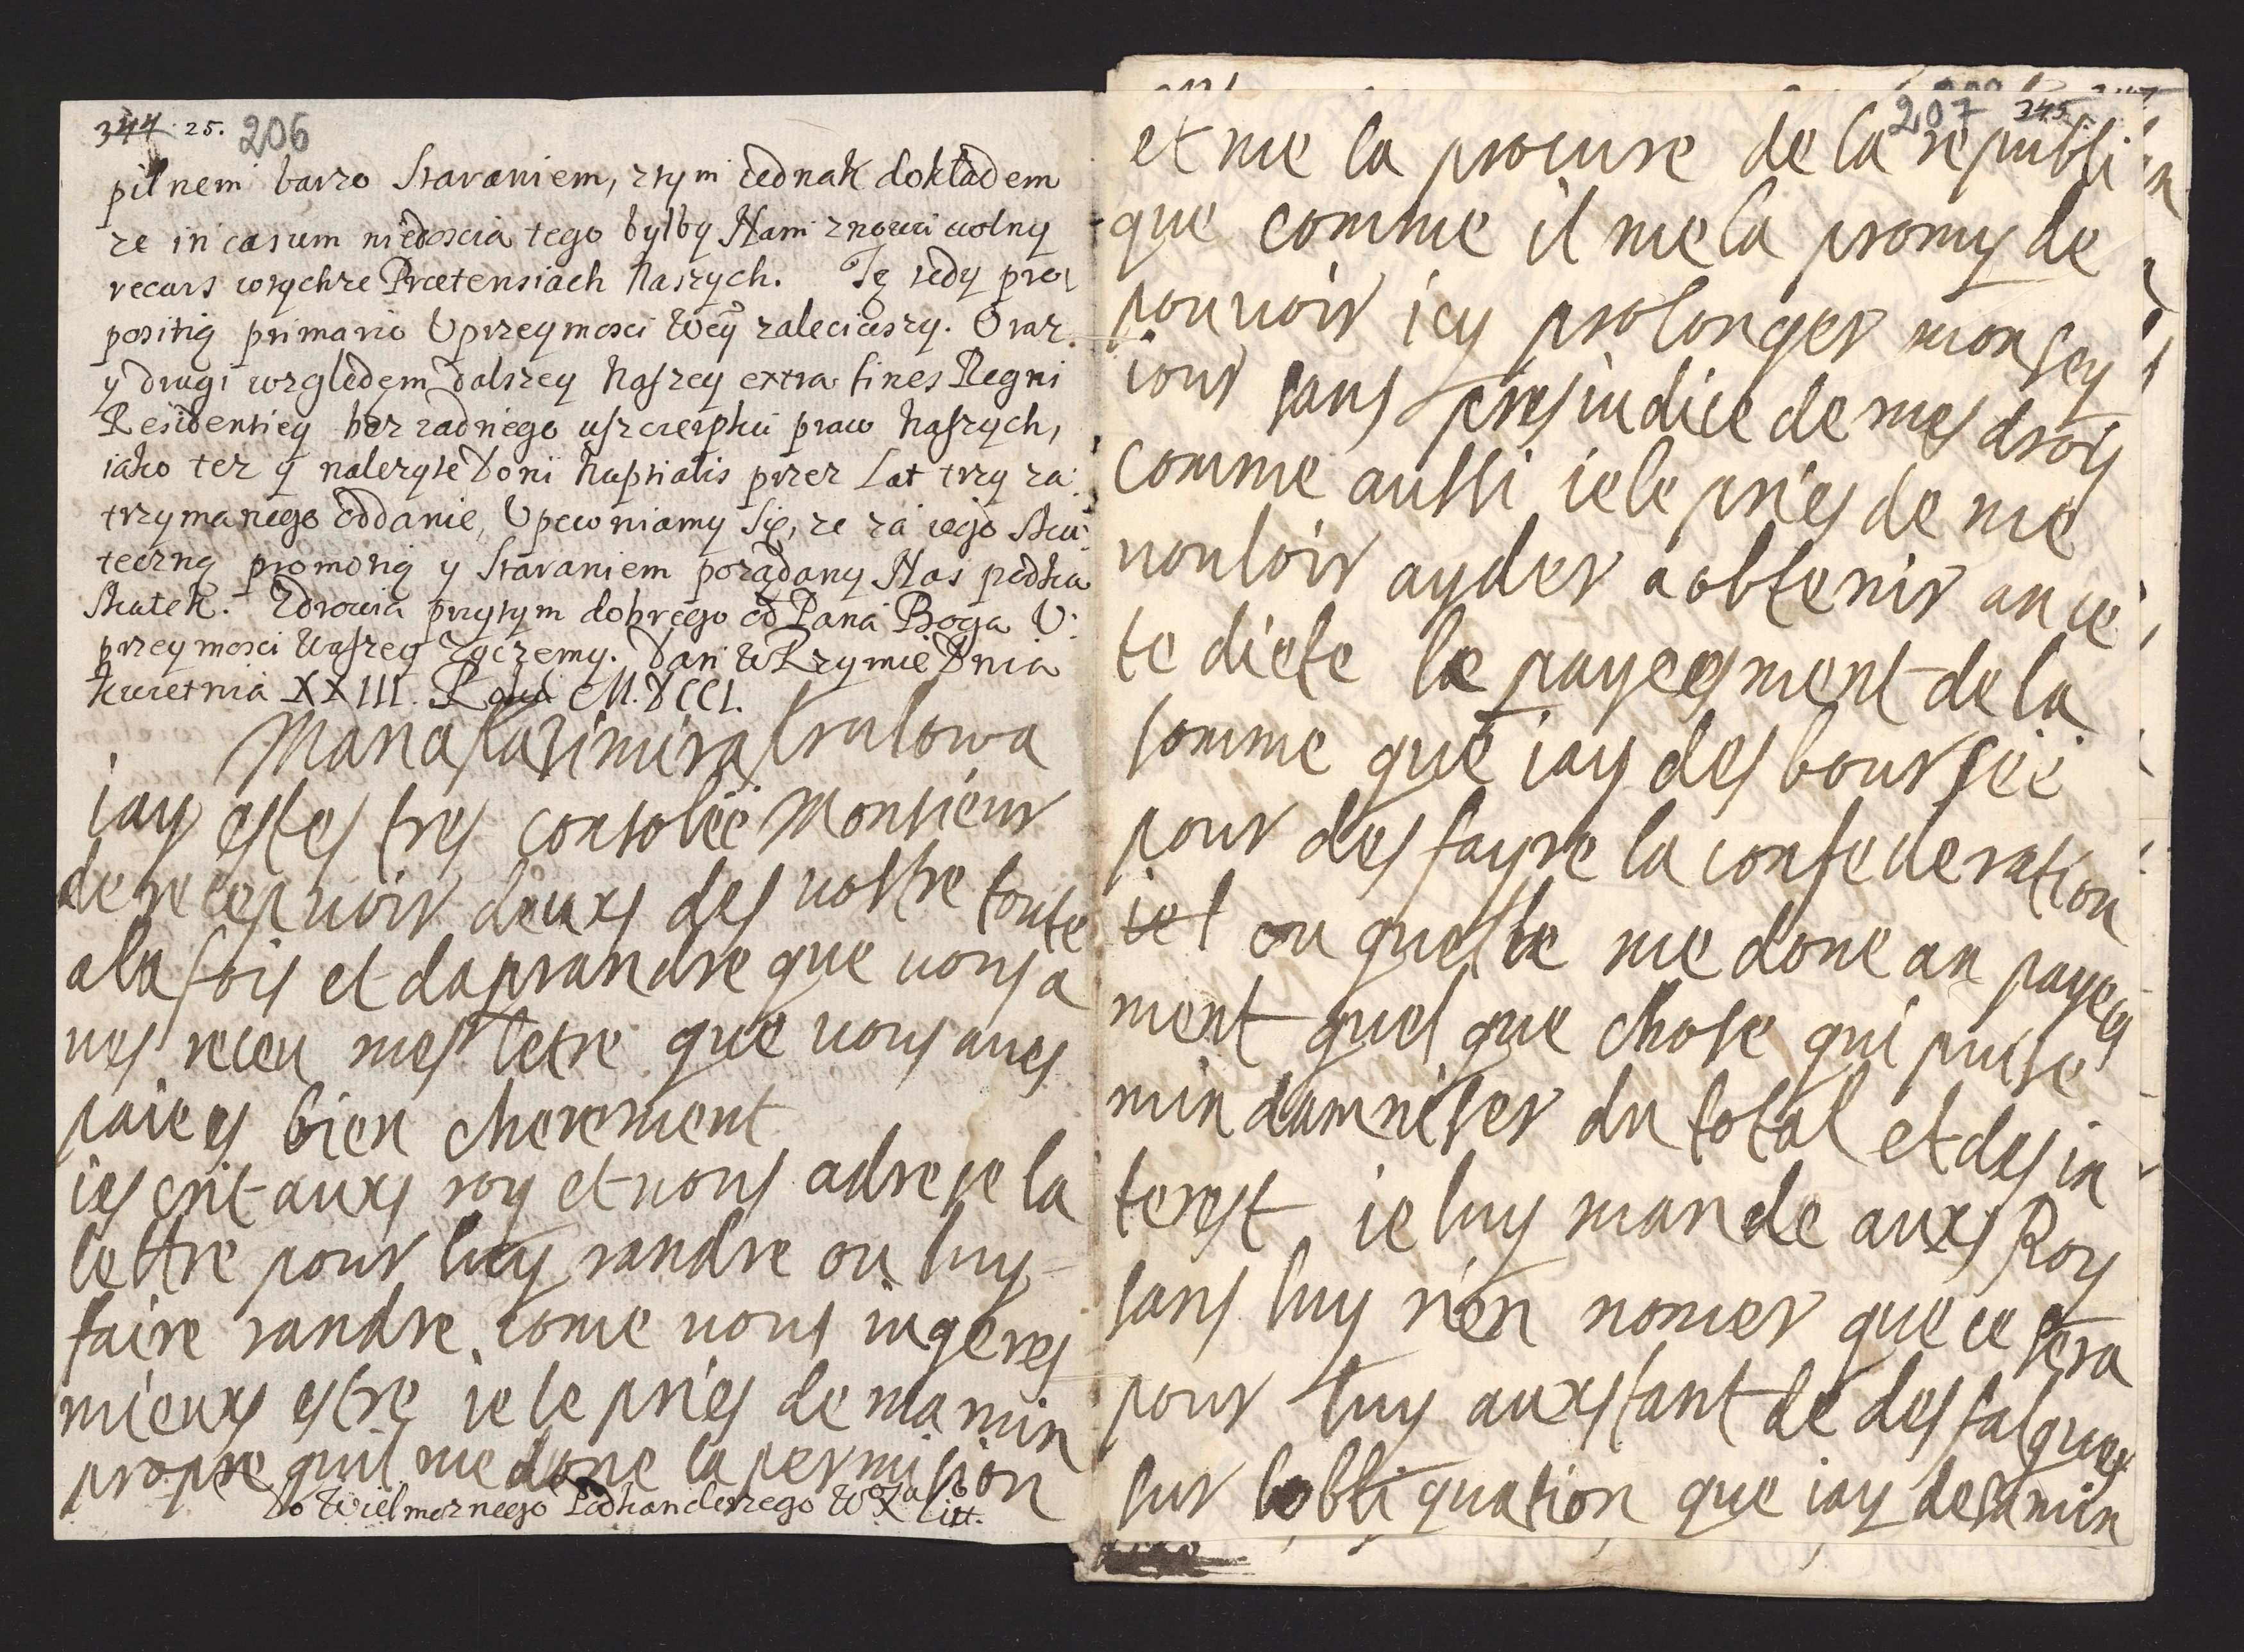 344. 25. 206
pilnem barzo staraniem, z tym iednak dokładem
ze in casum niedoscia tego byłby Nam znowu wolny
recurs wtychze Prætensiach Naszych. Tę tedy pro=
positią primario Uprzeymosci Wey zaleciwszy. Oraz
y drugi względem dalszey Naszey extra fines Regni
Residentiey bez zadnego uszczerpku praw Naszych,
iako tez y nalezyte Doni Nuptialis przez Lat trzy za:
trzymanego oddanie, Upewniamy Się, ze za iego sku:
teczną promotią y staraniem porządany Nas podka
skutek. Zdrowia przytym dobrego od Pana Boga U:
przeymosci Waszey Zyczemy. Dan w Rzymie Dnia
Kwietnia XXIII. Roku M.DCCI.
Maria Kazimira Krulowa
iay estes tres consoleé Monsieur
de recepuoir deuxs des vostre toute
ala fois et daprandre que vous a
ues receu mes letre que vous aues
paiees bien cherement
ies crit auxs roy et vous adrese la
lettre pour luy randre ou luy
faire randre come vous iugeres
mieuxs estre ie le pries de ma min
propre quil me done la permision
Do Wielmoznego Podkanclerzego W X Litt.
207 345
et me la procure de la republi
que comme il me la promy de
pouuoir icy prolonger mon sey
iour sans presiudice de mes drois
comme aussi ie le pries de me
vouloir ayder a obtenir an ce
te diete le payeesment de la
somme que iay des bourseé
pour des fayre la confederation
iel ou quelle me done an payees
ment quel que chose qui puise
min damniser du total et des in
terest ie luy mande auxs Roy
sans luy rien nomer que ce sera
pour luy auxstant de des falquer
sur lobliquation que iay de sa min